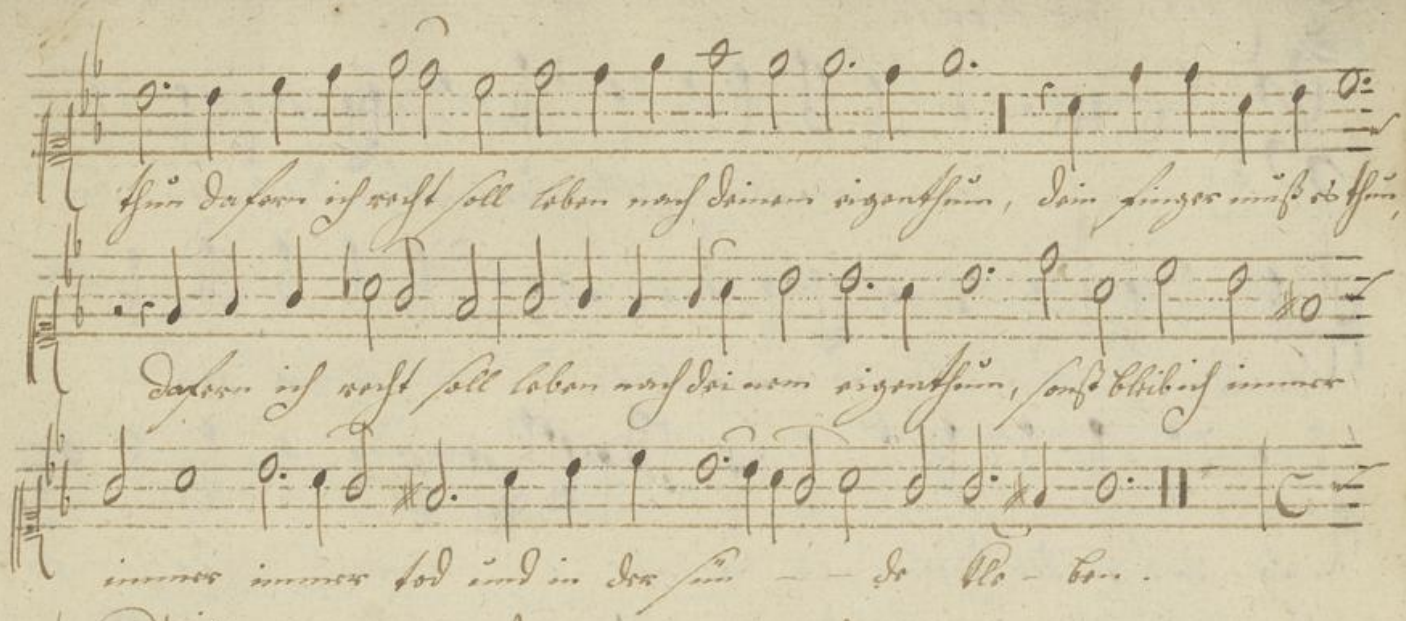 thun dafern ich recht soll leben nach deinem eigenthum, dein finger muß es thun,
dafern ich recht soll leben nach deinem eigenthum, sonst bleib ich immer
immer immer tod und in der sün - - de kle - ben.